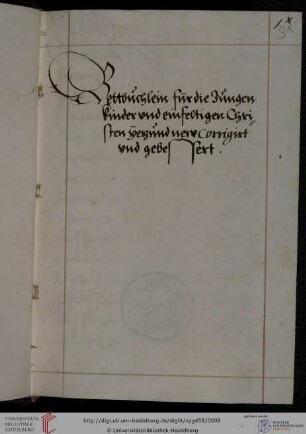 1*
3
Bettbüchlein für die Jungen
kinder vnd einfeltigen Chri-
sten yetzund new Corrigirt
vnd gebessert.
UNIVERSITÄTS
BIBLIOTHEK
HEIDELBERG
http://digi.ub.uni-heidelberg.de/diglit/cpg458/0009
© Universitätsbibliothek Heidelberg